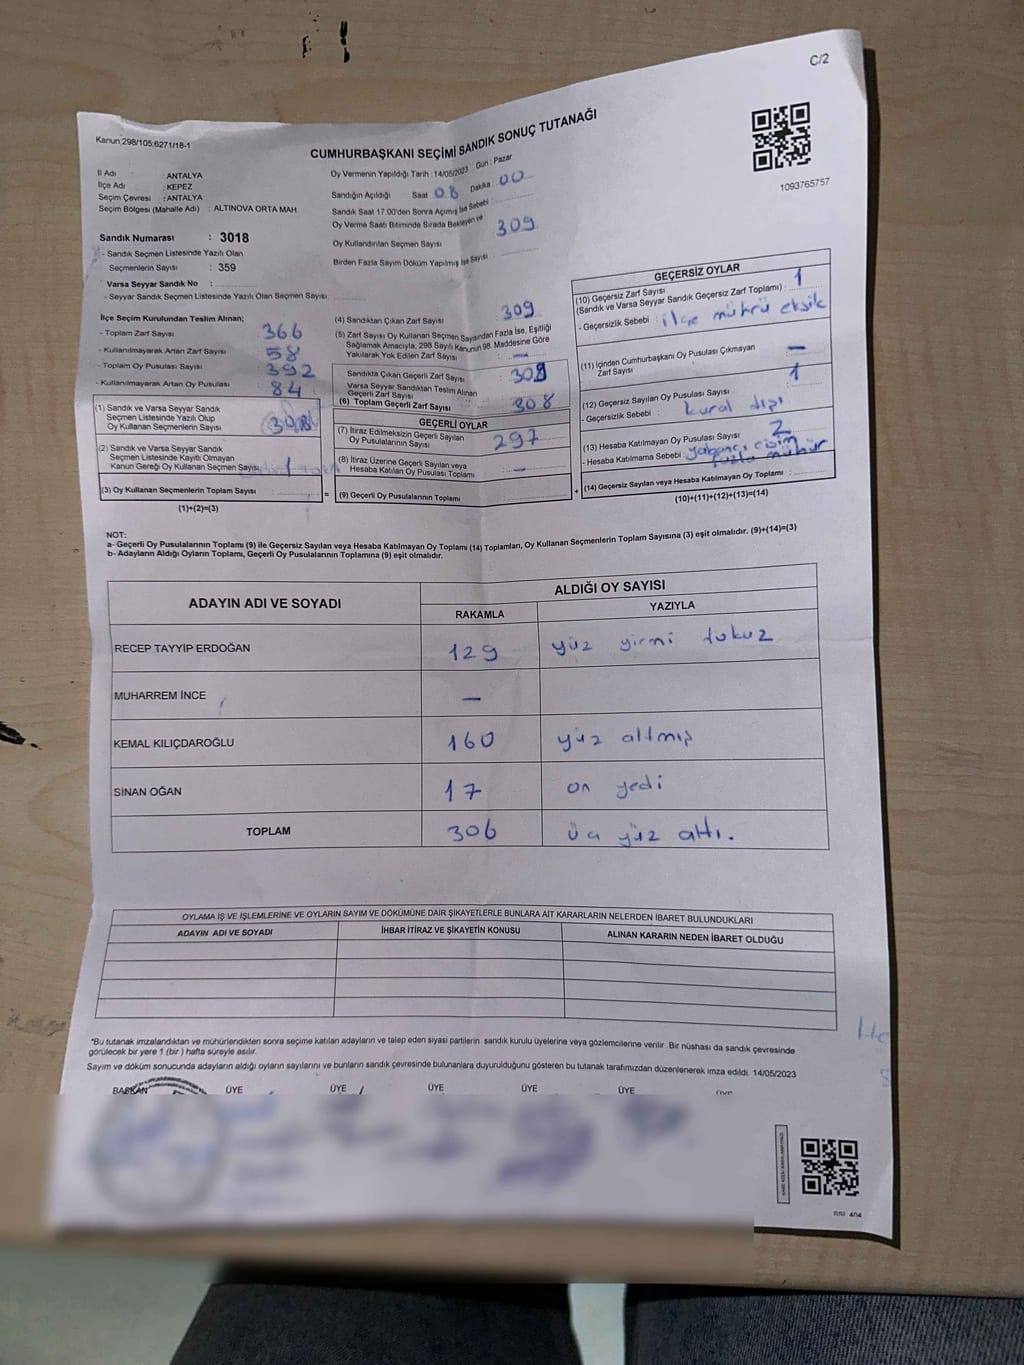 C/2
Kanun:298/105,6271/18-1
CUMHURBAŞKANI SEÇİMİ SANDIK SONUÇ TUTANAĞI
1093765757
İl Adı ANTALYA
İlçe Adı : KEPEZ
Seçim Çevresi : ANTALYA
Seçim Bölgesi (Mahalle Adı) : ALTINOVA ORTA MAH.
Sandık Numarası : 3018
- Sandık Seçmen Listesinde Yazılı Olan
Seçmenlerin Sayısı : 359
Varsa Seyyar Sandık No :
- Seyyar Sandık Seçmen Listesinde Yazılı Olan Seçmen Sayısı
Oy Vermenin Yapıldığı Tarih : 14/05/2023 Gün : Pazar
Sandığın Açıldığı Saat 08 Dakika : 00
Sandık Saat 17:00'den Sonra Açılmış İse Sebebi :
Oy Verme Saati Bitiminde Sırada Bekleyen ve
Oy Kullandırılan Seçmen Sayısı 309
Birden Fazla Sayım Döküm Yapılmış İse Sayısı :
İlçe Seçim Kurulundan Teslim Alınan;
- Toplam Zarf Sayısı 366
- Kullanılmayarak Artan Zarf Sayısı 58
- Toplam Oy Pusulası Sayısı 392
- Kullanılmayarak Artan Oy Pusulası : 84
(1) Sandık ve Varsa Seyyar Sandık
Seçmen Listesinde Yazılı Olup
Oy Kullanan Seçmenlerin Sayısı
(2) Sandık ve Varsa Seyyar Sandık
Seçmen Listesinde Kayıtlı Olmayan
Kanun Gereği Oy Kullanan Seçmen Sayısı 1
(3) Oy Kullanan Seçmenlerin Toplam Sayısı
(1)+(2)=(3)
(4) Sandıktan Çıkan Zarf Sayısı 309
(5) Zarf Sayısı Oy Kullanan Seçmen Sayısından Fazla İse, Eşitliği
Sağlamak Amacıyla, 298 Sayılı Kanunun 98. Maddesine Göre
Yakılarak Yok Edilen Zarf Sayısı : —
Sandıkta Çıkan Geçerli Zarf Sayısı : 308
Varsa Seyyar Sandıktan Teslim Alınan
Geçerli Zarf Sayısı
(6) Toplam Geçerli Zarf Sayısı : 308
GEÇERLİ OYLAR
(7) İtiraz Edilmeksizin Geçerli Sayılan
Oy Pusulalarının Sayısı : 297
(8) İtiraz Üzerine Geçerli Sayılan veya
Hesaba Katılan Oy Pusulası Toplamı : —
= (9) Geçerli Oy Pusulalarının Toplamı
GEÇERSİZ OYLAR
(10) Geçersiz Zarf Sayısı
(Sandık ve Varsa Seyyar Sandık Geçersiz Zarf Toplamı) : 1
- Geçersizlik Sebebi : ilçe mührü eksik
(11) İçinden Cumhurbaşkanı Oy Pusulası Çıkmayan
Zarf Sayısı —
(12) Geçersiz Sayılan Oy Pusulası Sayısı 1
- Geçersizlik Sebebi : kural dışı
(13) Hesaba Katılmayan Oy Pusulası Sayısı 2
- Hesaba Katılmama Sebebi : yabancı cisim
fazla mühür
+ (14) Geçersiz Sayılan veya Hesaba Katılmayan Oy Toplamı :
(10)+(11)+(12)+(13)=(14)
NOT:
a- Geçerli Oy Pusulalarının Toplamı (9) ile Geçersiz Sayılan veya Hesaba Katılmayan Oy Toplamı (14) Toplamları, Oy Kullanan Seçmenlerin Toplam Sayısına (3) eşit olmalıdır. (9)+(14)=(3)
b- Adayların Aldığı Oyların Toplamı, Geçerli Oy Pusulalarının Toplamına (9) eşit olmalıdır.
ADAYIN ADI VE SOYADI ALDIĞI OY SAYISI
RAKAMLA YAZIYLA
RECEP TAYYİP ERDOĞAN 129 yüz yirmi dokuz
MUHARREM İNCE —
KEMAL KILIÇDAROĞLU 160 yüz altmış
SİNAN OĞAN 17 on yedi
TOPLAM 306 üç yüz altı.
OYLAMA İŞ VE İŞLEMLERİNE VE OYLARIN SAYIM VE DÖKÜMÜNE DAİR ŞİKAYETLERLE BUNLARA AİT KARARLARIN NELERDEN İBARET BULUNDUKLARI
ADAYIN ADI VE SOYADI İHBAR İTİRAZ VE ŞİKAYETİN KONUSU ALINAN KARARIN NEDEN İBARET OLDUĞU
"Bu tutanak imzalandıktan ve mühürlendikten sonra seçime katılan adayların ve talep eden siyasi partilerin sandık kurulu üyelerine veya gözlemcilerine verilir. Bir nüshası da sandık çevresinde
görülecek bir yere 1 (bir ) hafta süreyle asılır.
Sayım ve döküm sonucunda adayların aldığı oyların sayılarını ve bunların sandık çevresinde bulunanlara duyurulduğunu gösteren bu tutanak tarafımızdan düzenlenerek imza edildi. 14/05/2023
BAŞKAN ÜYE ÜYE ÜYE ÜYE ÜYE ÜYE